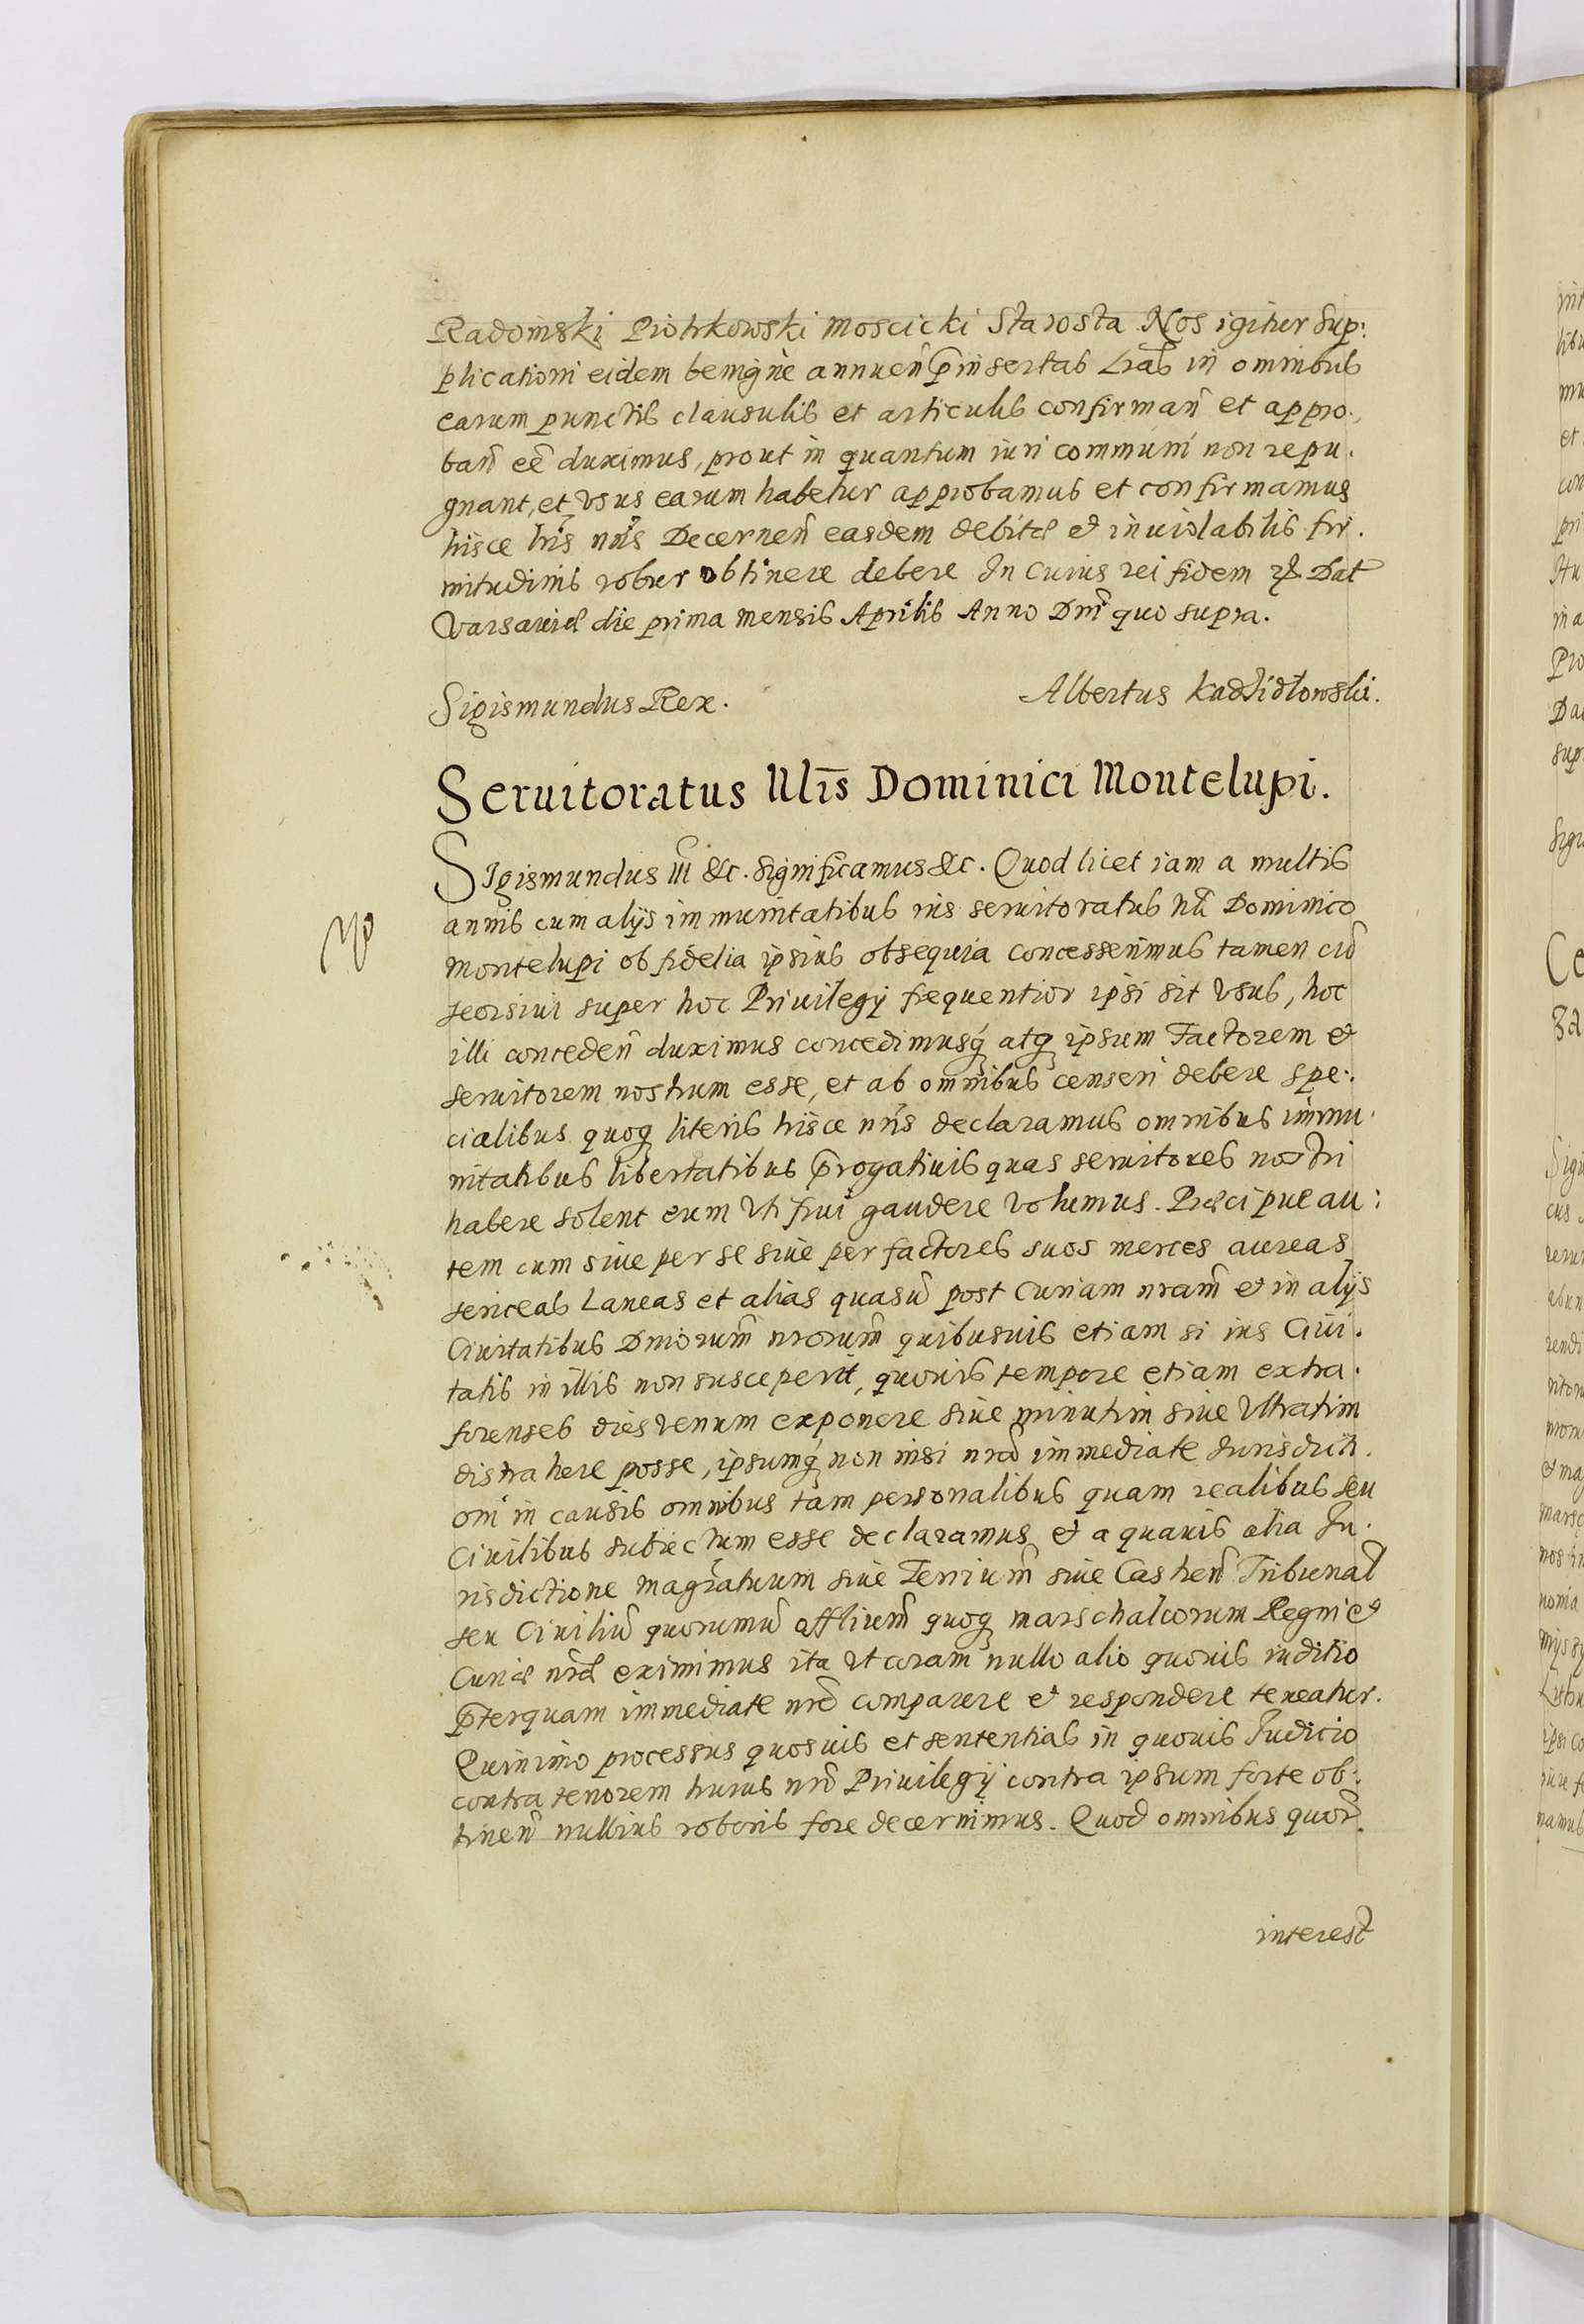 Radomski Piotrkowski Moscicki Starosta Nos igitur Sup:
plicationi eidem benigne annueñ p̃insertas Lrãs in omnibus
earum punctis clausulis et articulis confirmañ et appro:
bañ eẽ duximus, prout in quantum iuri communi non repu.
gnant, et vsus earum habetur approbamus et confirmamus
hisce lris nris Decerneñ easdem debitæ et inuiolabilis fir.
mitudinis robur obtinere debere In Cuius rei fidem Dat
Varsaviæ die prima mensis Aprilis Anno Dni quo supra.
Sigismundus Rex.
Albertus Kadzidlowski.
Seruitoratus Illis Dominici Montelupi.
SIgismundus III &c. Significamus &c. Quod licet iam a multis
annis cum alijs immunitatibus ius seruitoratus Dominico
Montelupi ob fidelia ipsius obsequia concesserimus tamen cũ
seorsiui super hoc Priuilegij frequentior ipsi sit vsus, hoc
illi concedeñ duximus concedimusq atq ipsum Factorem et
seruitorem nostrum esse, et ab omnibus censeri debere spe:
cialibus quoq literis hisce nris declaramus omnibus immu.
nitatibus libertatibus p̃rogatiuis quas seruitores nostri
habere solent eum vti frui gaudere volumus. Præcipue au:
tem cum siue per se siue per factores suos merces aureas
sericeas Laneas et alias quasuis post Curiam nram et in alijs
Ciuitatibus Dniorum nrorum quibusuis etiam si ius Ciui.
tatis in illis non susceperit, quouis tempore etiam extra.
forenses dies venum exponere siue minutim siue Vlnatim
distrahere posse, ipsumq non nisi nræ immediate Iurisdicti.
oni in causis omnibus tam personalibus quam realibus seu
Ciuilibus subiectum esse declaramus et a quauis alia Iu.
risdictione magratuum siue Terrium siue Castreñ Tribunal
seu Ciuiliũ quorumuis offlium quoq marschalcorum Regni et
Curiæ nræ eximimus ita vt coram nullo alio quouis iuditio
p̃terquam immediate nro comparere et respondere teneatur.
Quinimo processus quosuis et sententias in quouis Iudicio
contra tenorem huius nri Priuilegij contra ipsum forte ob:
tineñ nullius roboris fore decernimus. Quod omnibus quor.
interest